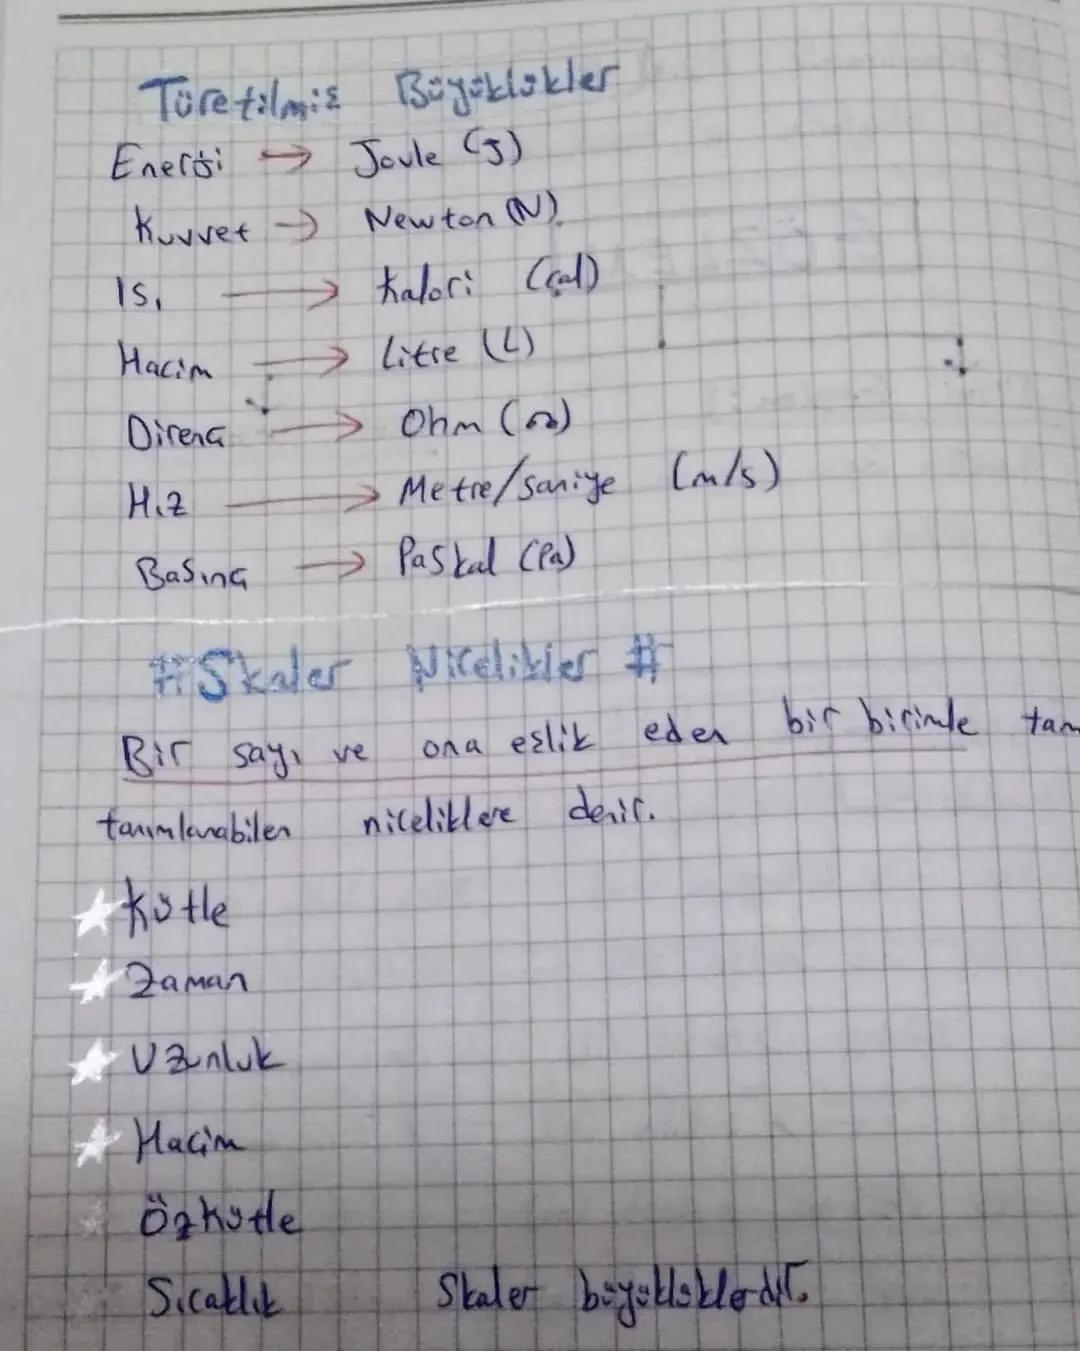 Türetilmiş Büyüklükler
Enerji → Joule (J)
Kuvvet → Newton (N)
Isı → Kalori (cal)
Hacim → Litre (L)
Direnç → Ohm (Ω)
Hız → Metre/saniye (m/s)
Basınç → Paskal (Pa)
#Skaler Nicelikler #
Bir sayı ve ona eşlik eden bir birimle tam
tanımlanabilen niceliklere denir.
★ Kütle
★ Zaman
★ Uzunluk
★ Hacim
Özkütle
Sıcaklık Skaler büyüklüklerdir.